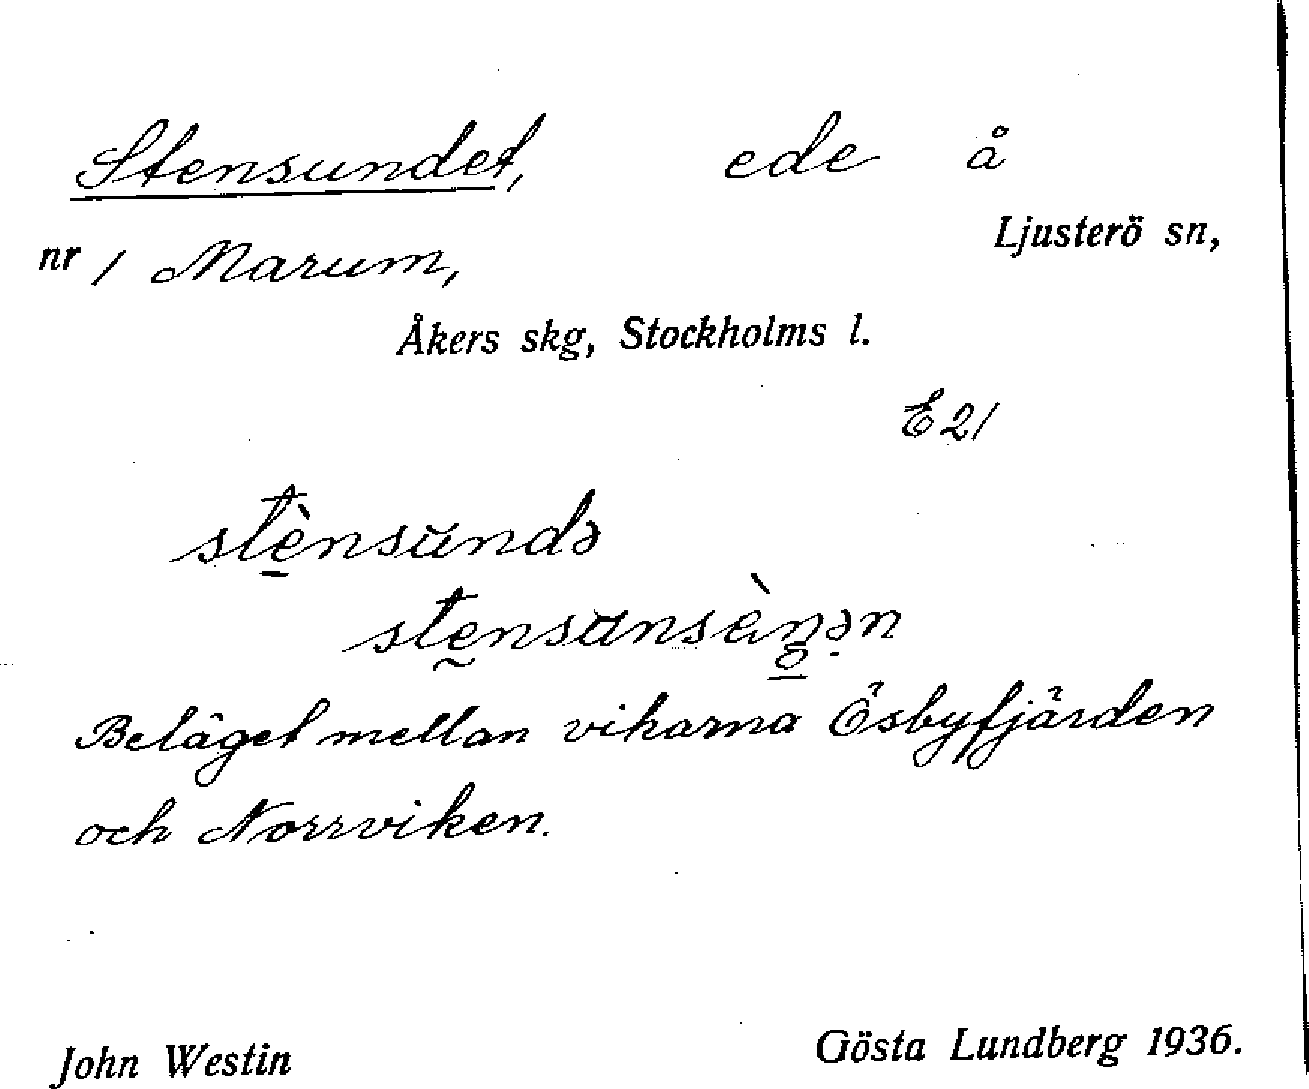 Stensundet, ede å
Ljusterö sn,
nr 1 Marum,
Åkers skg, Stockholms l.
E21
stènsŭndə
stensŭnsèŋən
Beläget mellan vikarna Ösbyfjärden
och Norrviken.
John Westin Gösta Lundberg 1936.